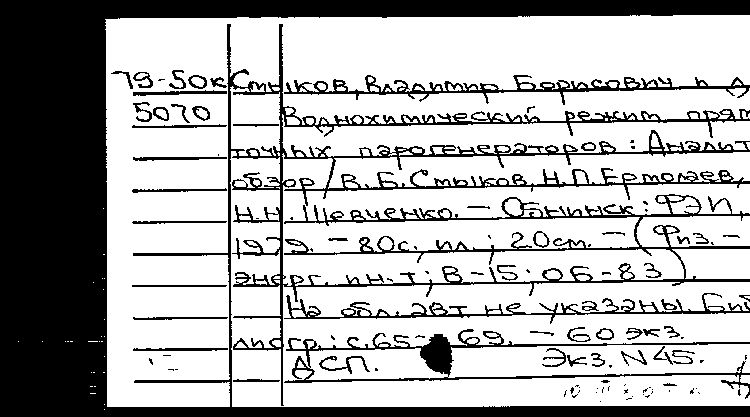 79-50к Смыков, Владимир Борисович и д
5070 Воднохимический режим прям
точных парогенераторов: Аналит
обзор / В.Б. Смыков, Н.П. Ермолаев,
Н.Н. Шевченко. - Обнинск: ФЭИ,
1979. - 80с., ил.; 20см. - (Физ. -
энерг. ин-т; В-15; ОБ-83).
На обл. авт. не указаны. Биб
лиогр.: с.65-69. - 60 экз.
ДСП. Экз. N45.